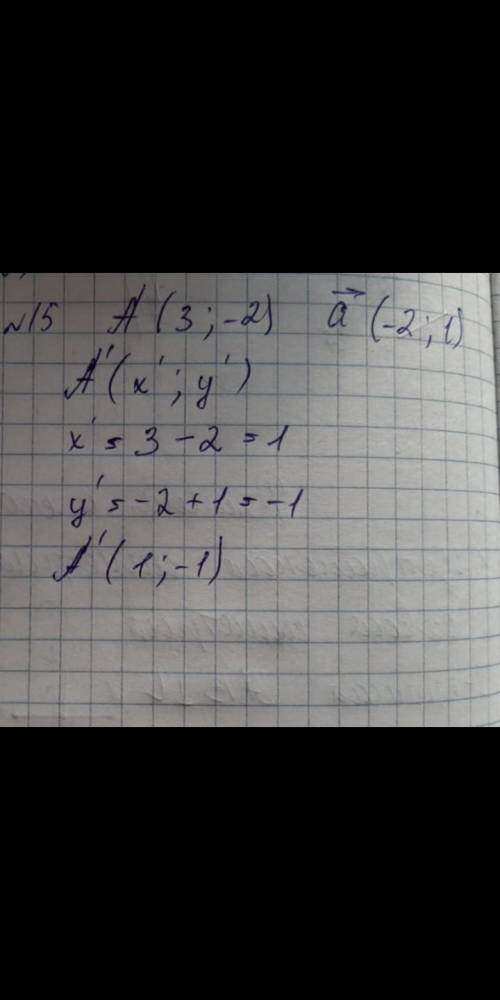 №15 A (3 ; -2) a⃗ (-2 ; 1)
A' (x' ; y')
x' = 3 - 2 = 1
y' = -2 + 1 = -1
A' (1 ; -1)